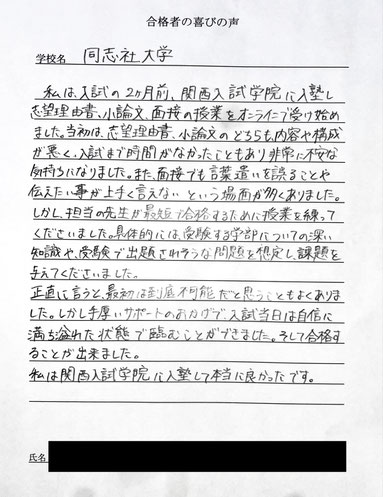 合格者の喜びの声
学校名 同志社大学
私は、入試の2ヶ月前、関西入試学院に入塾し
志望理由書、小論文、面接の授業をオンラインで受け始め
ました。当初は、志望理由書、小論文のどちらも、内容や構成
が悪く、入試まで時間がなかったこともあり非常に不安な
気持ちになりました。また、面接でも言葉遣いを誤ることや
伝えたい事が上手く言えないという場面が多くありました。
しかし、担当の先生が最短で合格するために授業を練って
くださいました。具体的には、受験する学部についての深い
知識や、受験で出題されそうな問題を想定し、課題を
与えてくださいました。
正直に言うと、最初は到底不可能だと思うこともよくありま
した。しかし手厚いサポートのおかげで、入試当日は自信に
満ち溢れた状態で臨むことができました。そして合格す
ることが出来ました。
私は関西入試学院に入塾して本当に良かったです。
氏名